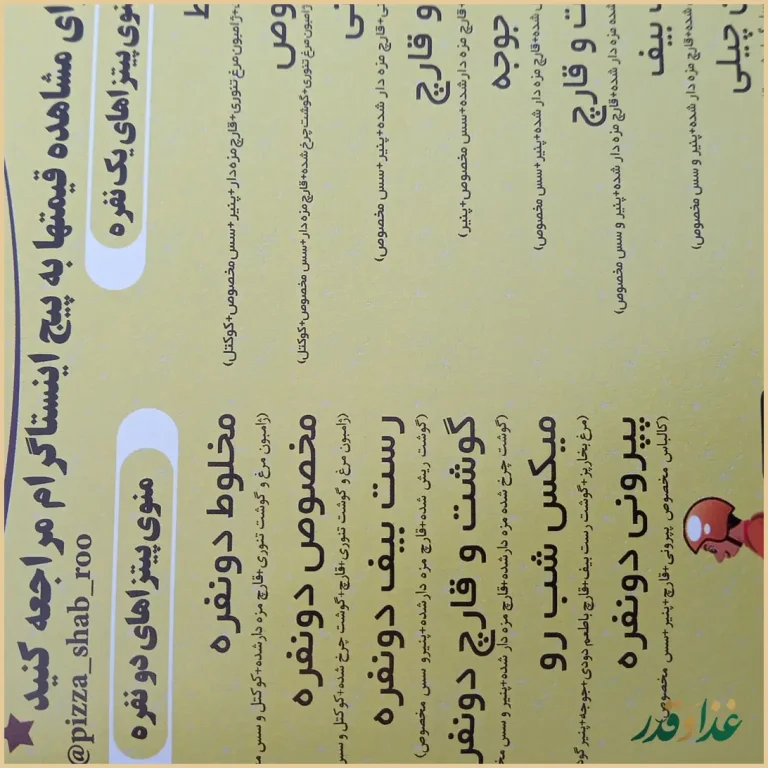 مشاهده قیمتها به پیج اینستاگرام مراجعه کنید
@pizza_shab_roo
منوی پیتزاهای یک نفره
+ژامبون مرغ تنوری+قارچ مزه دار+پنیر+سس مخصوص+کوکتل)
ژامبون مرغ تنوری+گوشت چرخ شده+قارچ مزه دار+سس مخصوص+کوکتل)
+قارچ مزه دار شده+پنیر+سس مخصوص)
و قارچ
+قارچ مزه دار شده+سس مخصوص+پنیر)
جوجه
شده+قارچ مزه دار شده+پنیر+سس مخصوص)
و قارچ
شده+قارچ مزه دار شده+پنیر و سس مخصوص)
بیف
شده+قارچ مزه دار شده+پنیر و سس مخصوص)
چیلی
منوی پیتزاهای دو نفره
مخلوط دونفره
(ژامبون مرغ و گوشت تنوری+قارچ مزه دار شده+کوکتل و سس
مخصوص دونفره
(ژامبون مرغ و گوشت تنوری+قارچ+گوشت چرخ شده+کوکتل و سس
رست بیف دونفره
(گوشت ریش شده+قارچ مزه دار شده+پنیر و سس مخصوص)
گوشت و قارچ دونفر
(گوشت چرخ شده مزه دار شده+قارچ مزه دار شده+پنیر و سس
میکس شب رو
(مرغ بخارپز+گوشت رست بیف+قارچ باطعم دودی+جوجه+پنیر
پپرونی دونفره
(کالباس مخصوص پپرونی+قارچ+پنیر+سس مخصوص
غذا و قدر